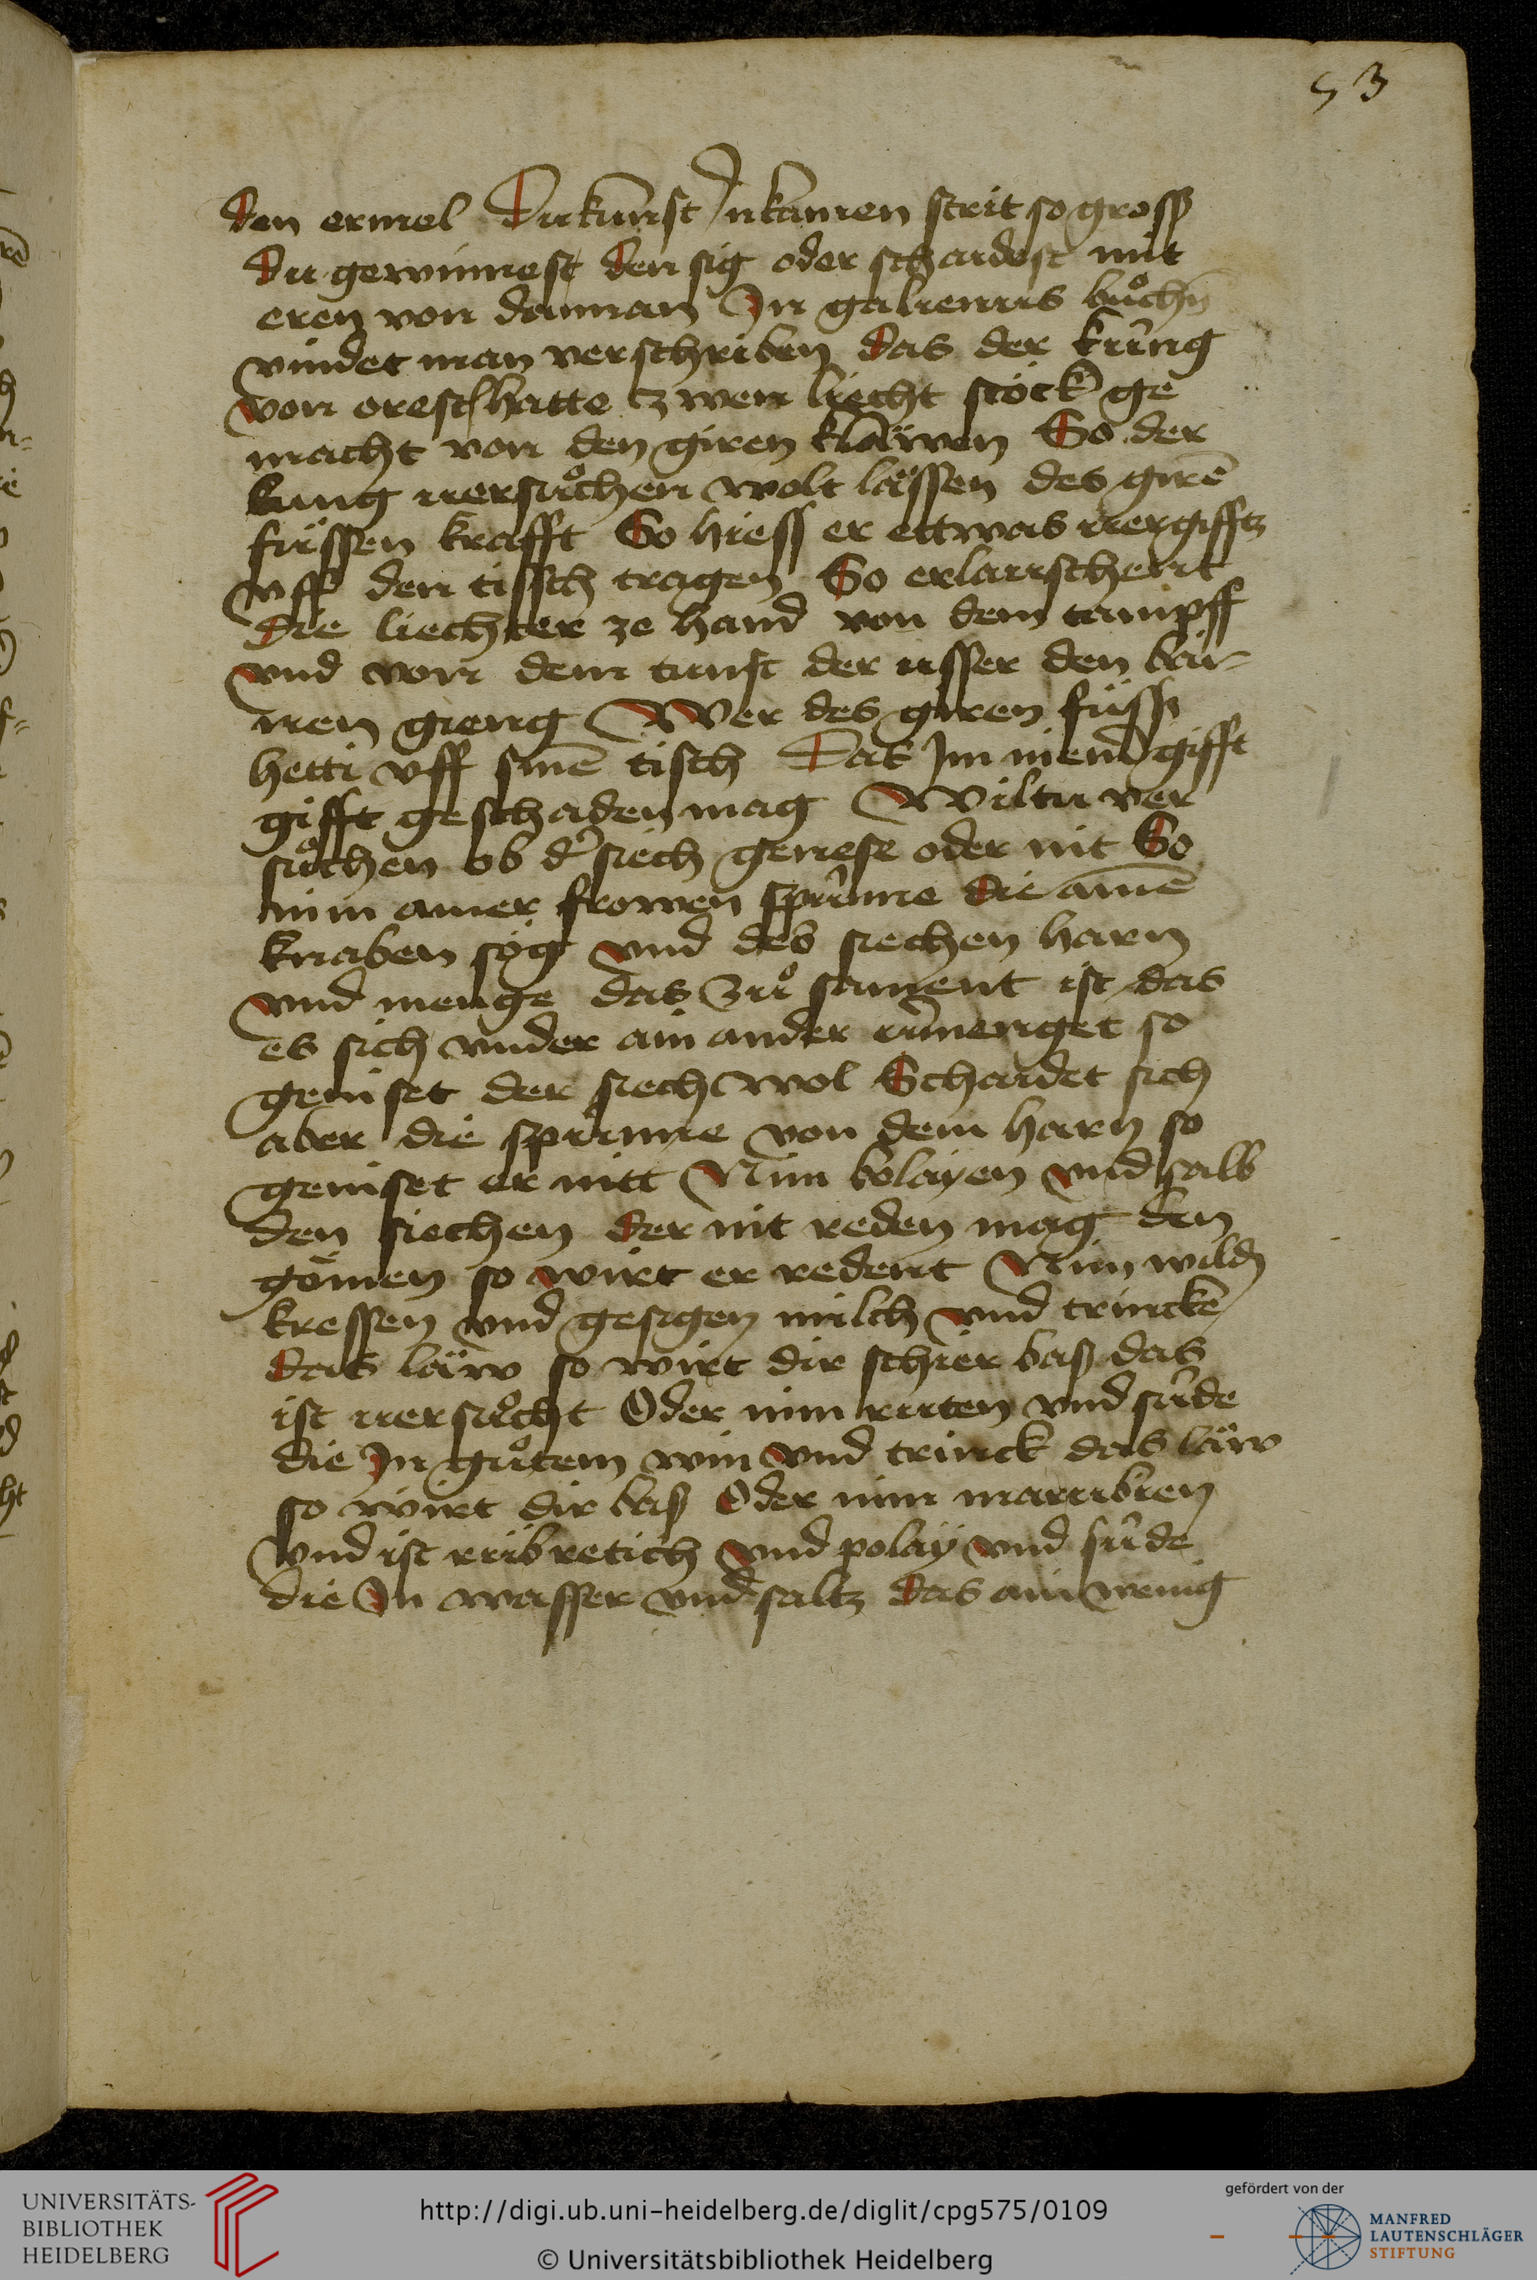 53
den ermel Du kumst In kainen strit so gross
du gewinnest den sig oder schaidest mit
eren von dannan In galienus buͦchñ
vindet man verschriben das der küng
von orest hatte zwen liecht stöck ge
macht von den giren kläwen So der
kung uersuͦchen wolt lässen des girē
füssen krafft So hiess er ettwas uergifftz
vff den tissch tragen So erlaschent
die liechter ze hand von dem tampff
vnd von dem tunst der usser den bai-
nen gieng Wer des giren füss
hetti vff sinē tisch Das Im niend gifft
gifft geschaden mag Wiltu ver
suͦchen ob d' siech genese oder nit So
nim ainer frowen spünne die ainē
knaben sög vnd des siechen harn
vnd menge das zuͦ sament ist das
es sich vnder ain ander menget so
geniset der siech wol Schaidet sich
aber die spünne von dem harn so
geniset er nitt Nim bolayen vnd salb
den siechen der nit reden mag den
gömen so wirt er redent Nim wild
kressen vnd gesigen milch vnd trinckē
das läw so wirt dir schier bas das
ist uersuͦcht Oder nim ruten vnd süde
die In guͦtem win vnd trinck das läw
so wirt dir bas Oder nim marubien
vnd ist rübretich vnd polaÿ vnd süde
die In wasser vnd saltz das ain wenig
UNIVERSITÄTS-
BIBLIOTHEK
HEIDELBERG
http://digi.ub.uni-heidelberg.de/diglit/cpg575/0109
© Universitätsbibliothek Heidelberg
gefördert von der
MANFRED
LAUTENSCHLÄGER
STIFTUNG